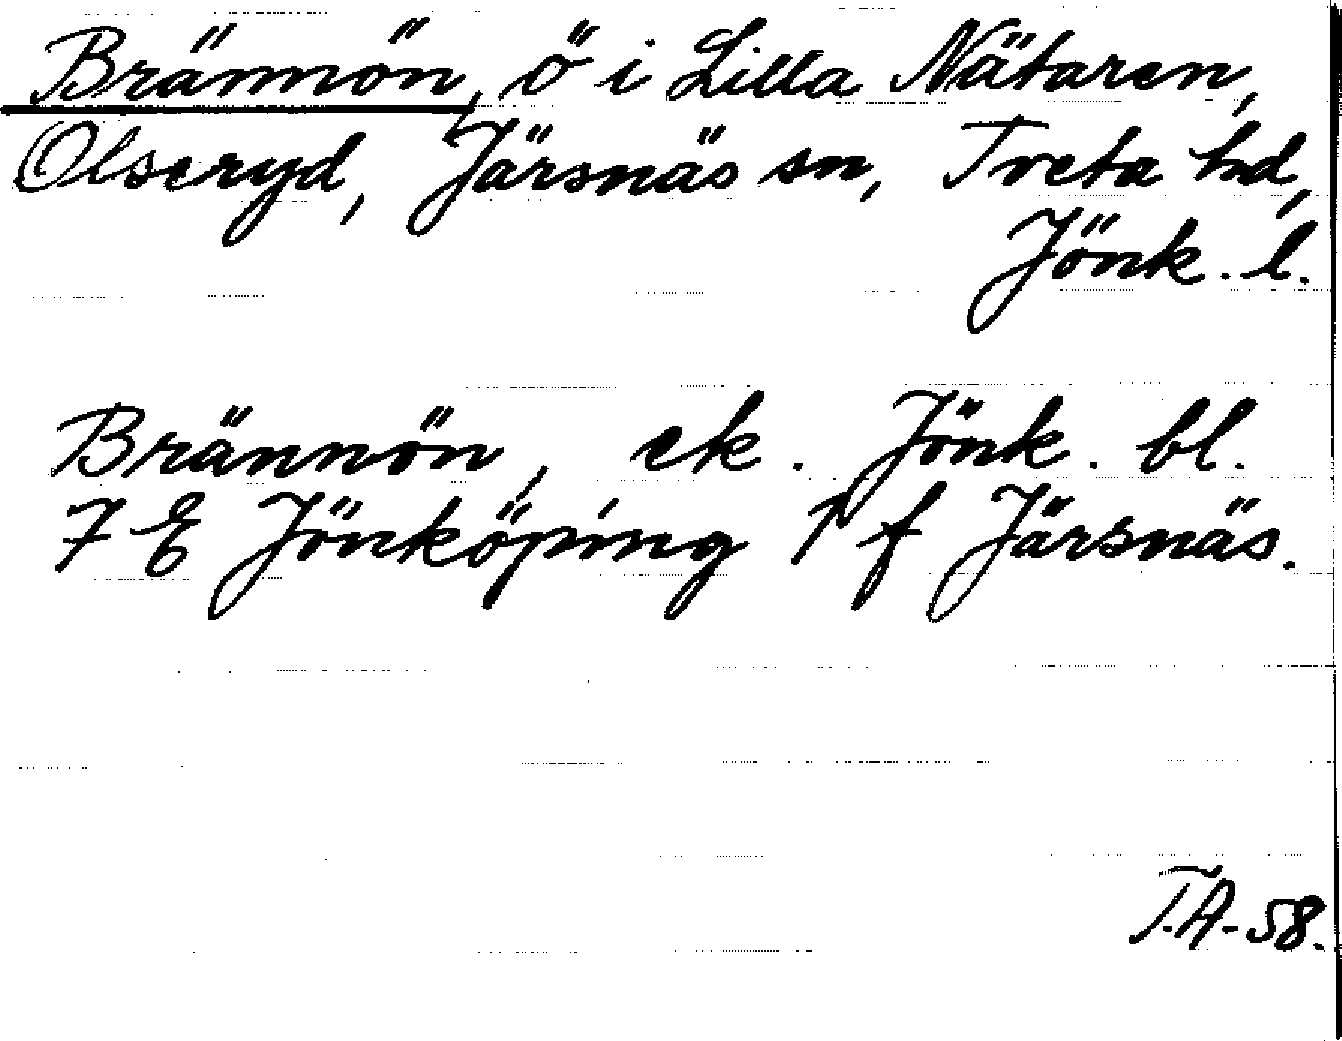 Brännön, ö i Lilla Nätaren,
Olseryd, Järsnäs sn, Tveta hd,
Jönk. l.
Brännön, ek. Jönk. bl.
7 E Jönköping 1 f Järsnäs.
T.A-58.